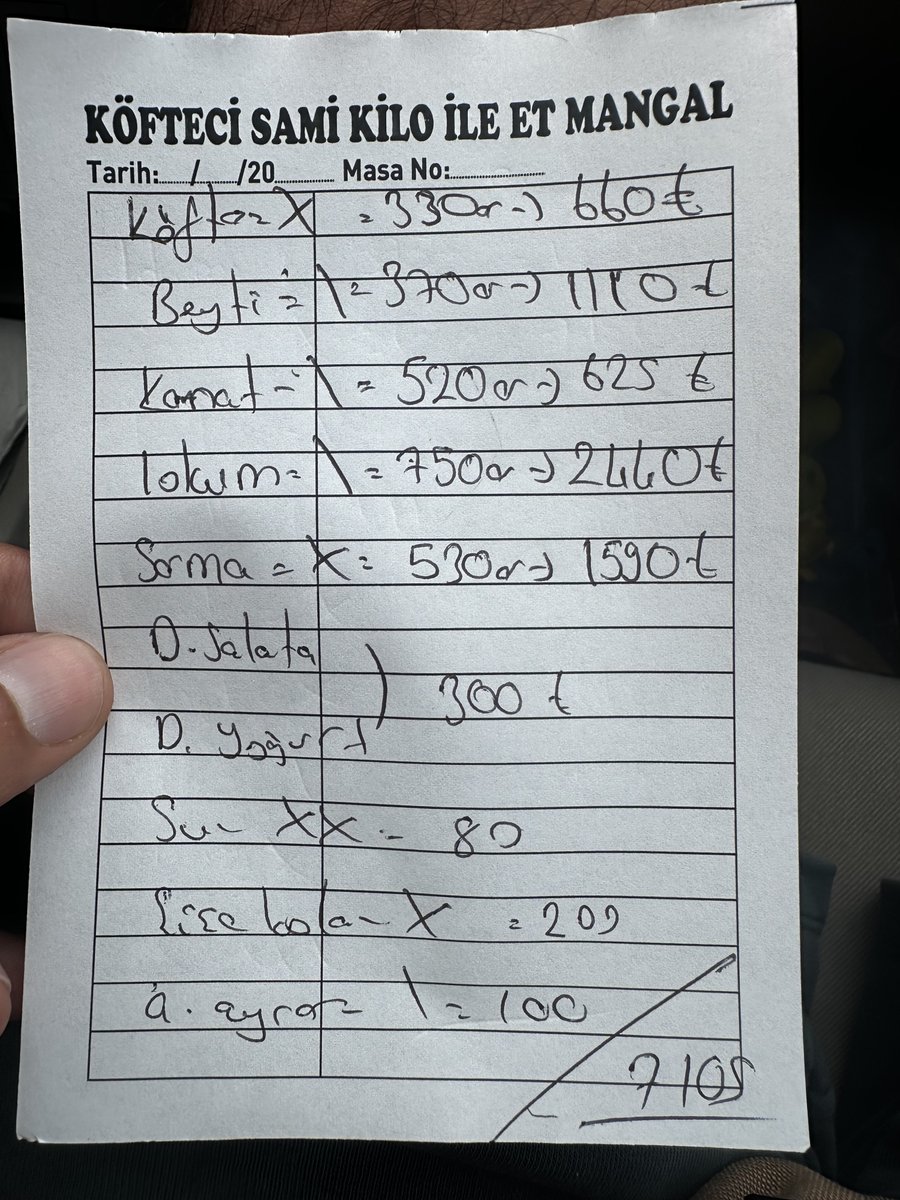 KÖFTECİ SAMİ KİLO İLE ET MANGAL
Tarih:....../....../20............ Masa No:..................
Köfte= X = 330gr→ 660₺
Beyti = \ = 370gr→ 1110₺
Kanat = \ = 520gr→ 625 ₺
lokum= \ = 750gr→ 2440₺
Sarma = X = 530gr→ 1590₺
D. Salata
) 300 ₺
D. Yoğurt
Su- XX = 80
Şişe kola- X = 200
A. ayran= \ = 100
7105